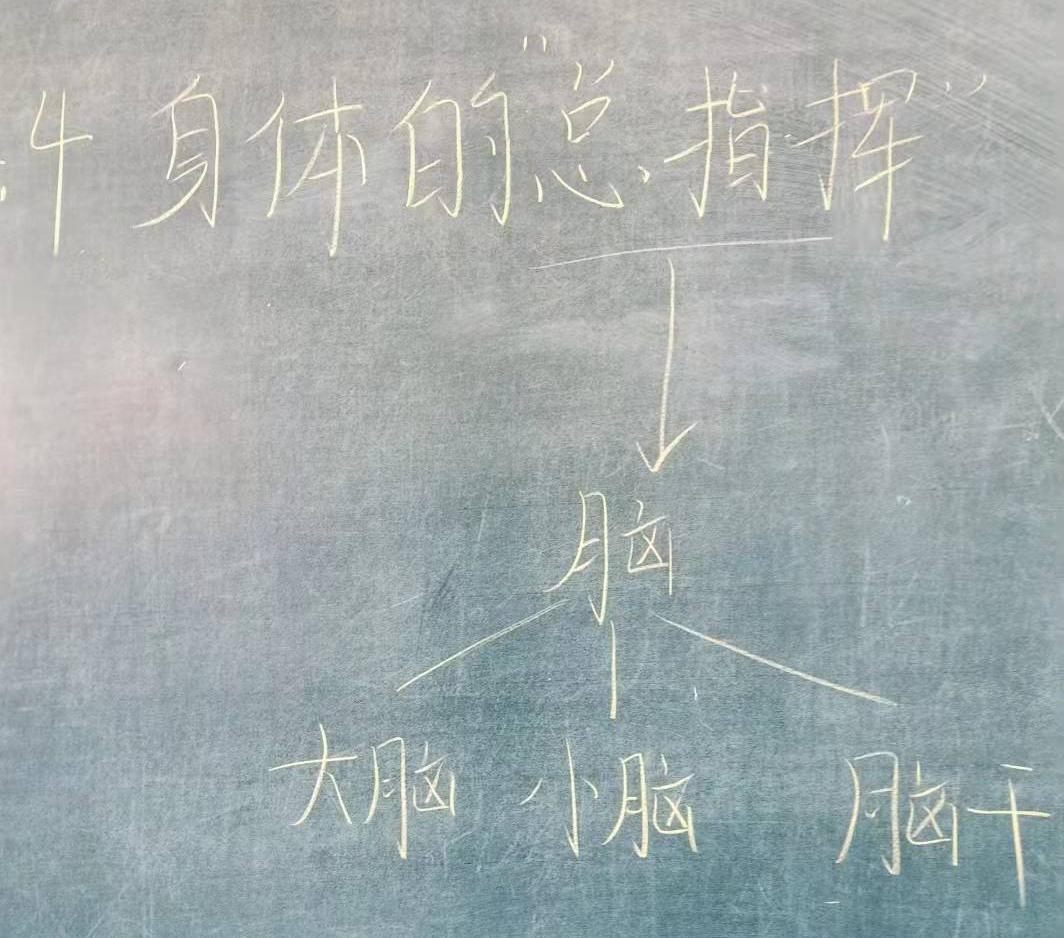 .4 身体的“总指挥”
脑
大脑 小脑 脑干